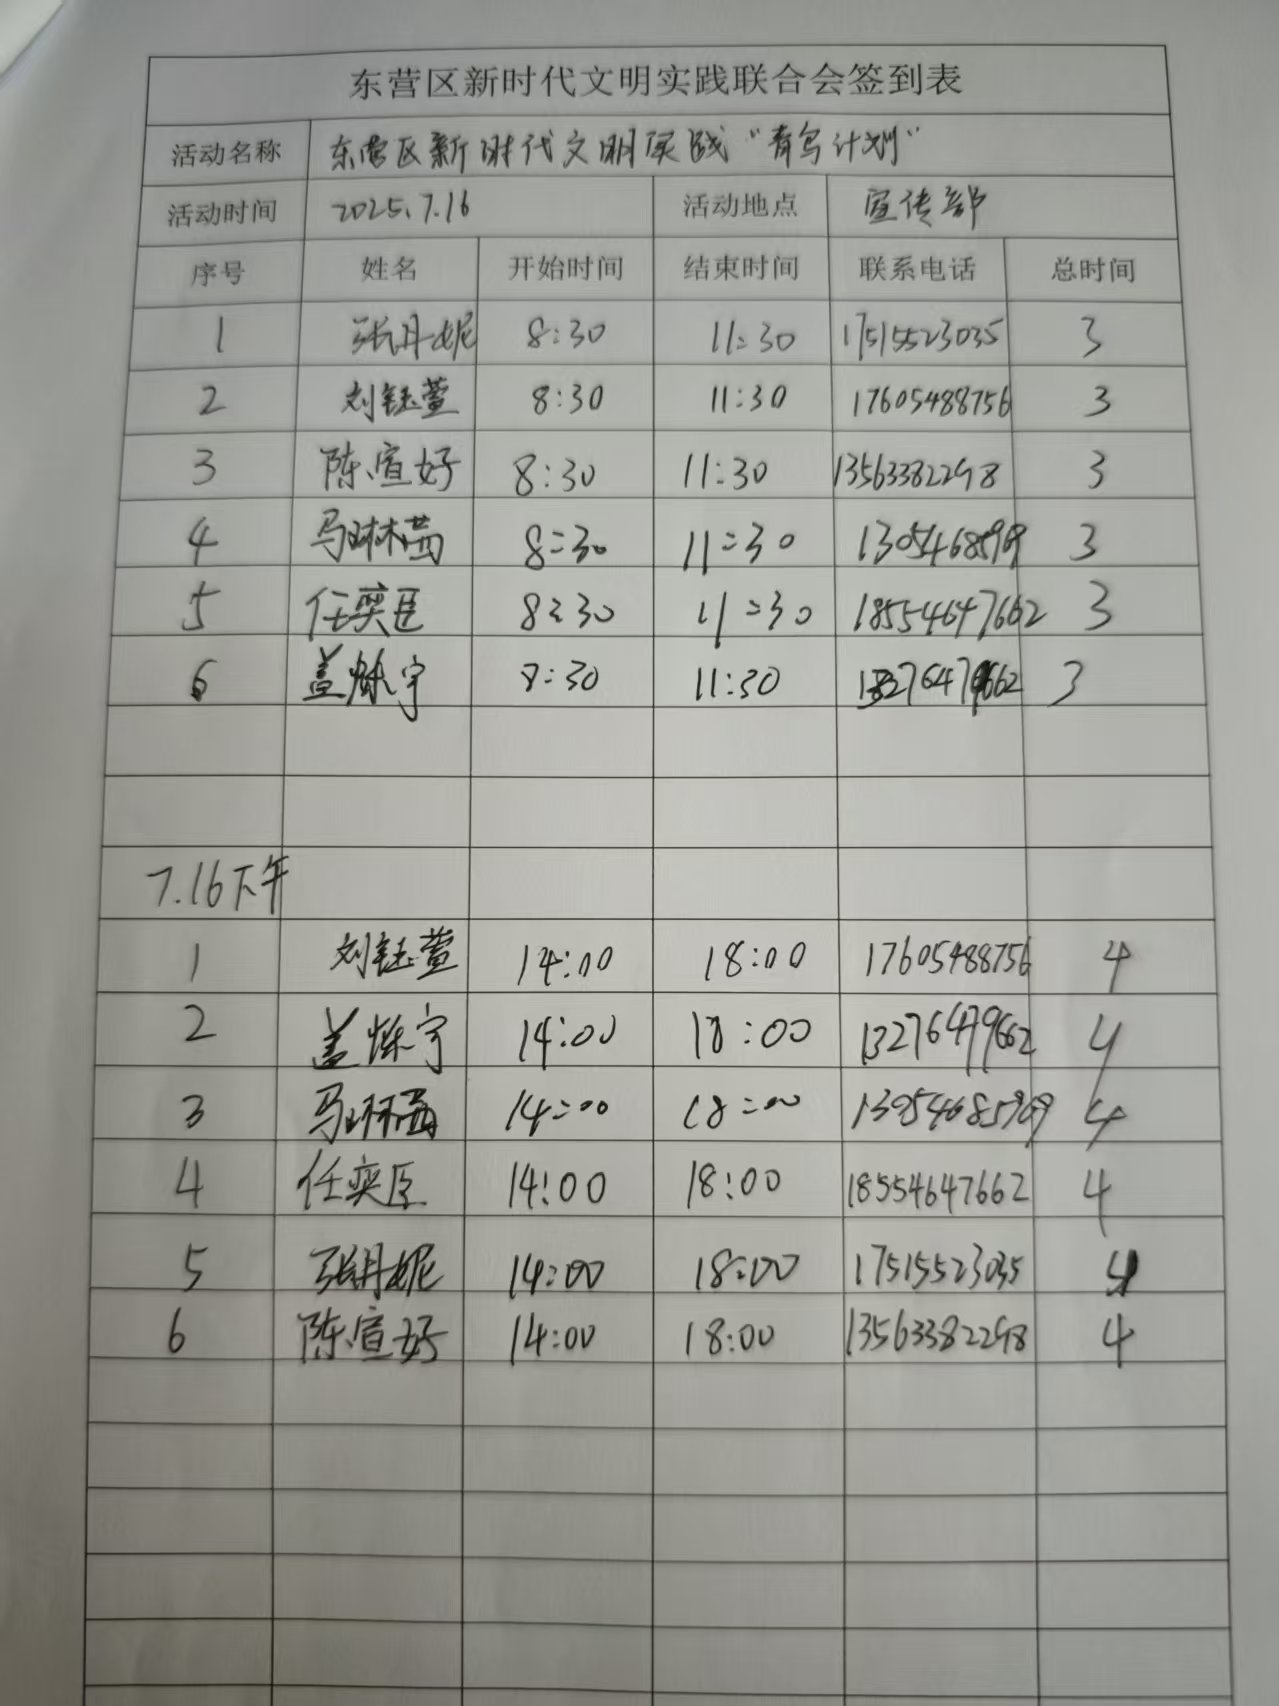 东营区新时代文明实践联合会签到表
活动名称 东营区新时代文明实践“青鸟计划”
活动时间 2025.7.16 活动地点 宣传部
序号 姓名 开始时间 结束时间 联系电话 总时间
1 张丹妮 8:30 11:30 17515523035 3
2 刘钰萱 8:30 11:30 17605488756 3
3 陈谊好 8:30 11:30 13563382298 3
4 马琳茜 8:30 11:30 3
5 任奕臣 8:30 11:30 18554647662 3
6 盖烁宇 8:30 11:30 13276479662 3
7.16下午
1 刘钰萱 14:00 18:00 17605488756 4
2 盖烁宇 14:00 18:00 13276479662 4
3 马琳茜 14:00 18:00 4
4 任奕臣 14:00 18:00 18554647662 4
5 张丹妮 14:00 18:00 17515523035 4
6 陈谊好 14:00 18:00 13563382298 4